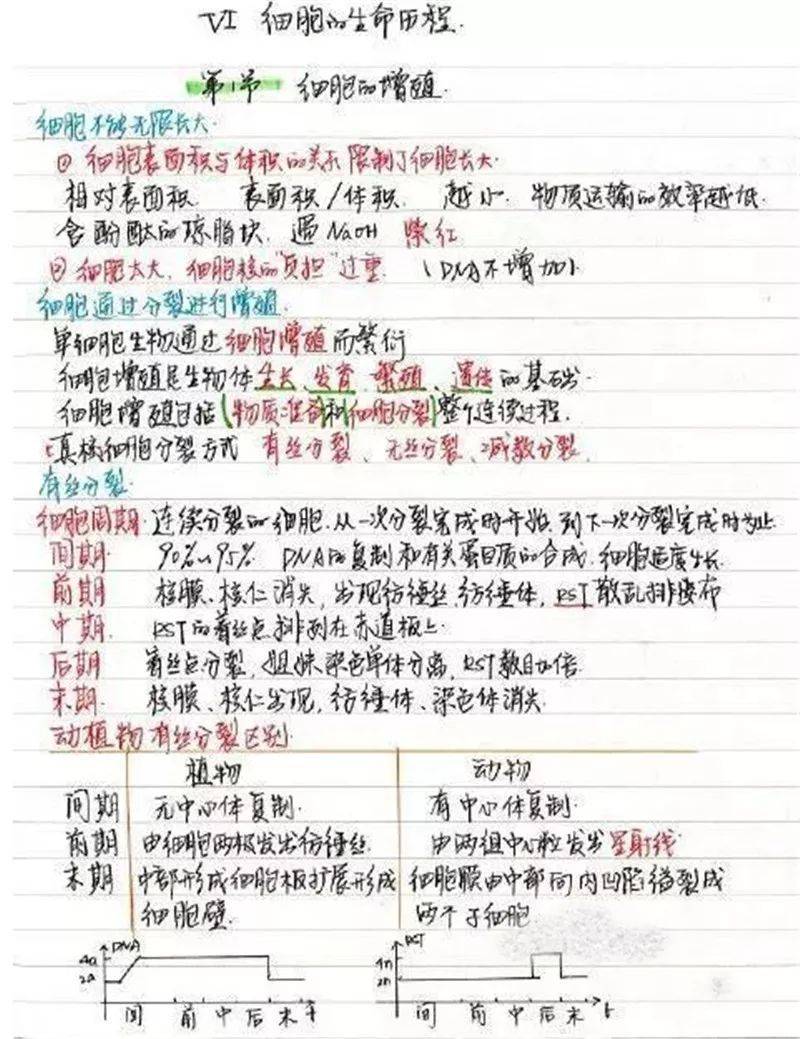 VI 细胞的生命历程.
第1节 细胞的增殖.
细胞不能无限长大.
① 细胞表面积与体积的关系限制了细胞长大.
相对表面积. 表面积/体积. 越小. 物质运输的效率越低.
含酚酞的琼脂块. 遇NaOH 紫红.
② 细胞太大, 细胞核的"负担"过重. (DNA不增加).
细胞通过分裂进行增殖.
单细胞生物通过细胞增殖而繁衍
细胞增殖是生物体生长、发育、繁殖、遗传的基础.
细胞增殖包括(物质准备)和(细胞分裂)整个连续过程.
真核细胞分裂方式 有丝分裂、无丝分裂、减数分裂.
有丝分裂.
细胞周期. 连续分裂的细胞. 从一次分裂完成时开始. 到下一次分裂完成时为止.
间期. 90%~95% DNA的复制和有关蛋白质的合成. 细胞适度生长.
前期 核膜、核仁消失, 出现纺锤丝. 纺锤体, RST散乱排布
中期. RST的着丝点排列在赤道板上.
后期 着丝点分裂, 姐妹染色单体分离, RST数目加倍.
末期. 核膜、核仁出现, 纺锤体、染色体消失.
动植物有丝分裂区别.
植物 动物
间期 无中心体复制. 有中心体复制.
前期 由细胞两极发出纺锤丝. 由两组中心粒发出星射线.
末期 中部形成细胞板扩展形成 细胞膜由中部向内凹陷缢裂成
细胞壁. 两个子细胞
DNA RST
4a 4n
2a 2n
间 前 中 后 末 t 间 前 中 后 末 t